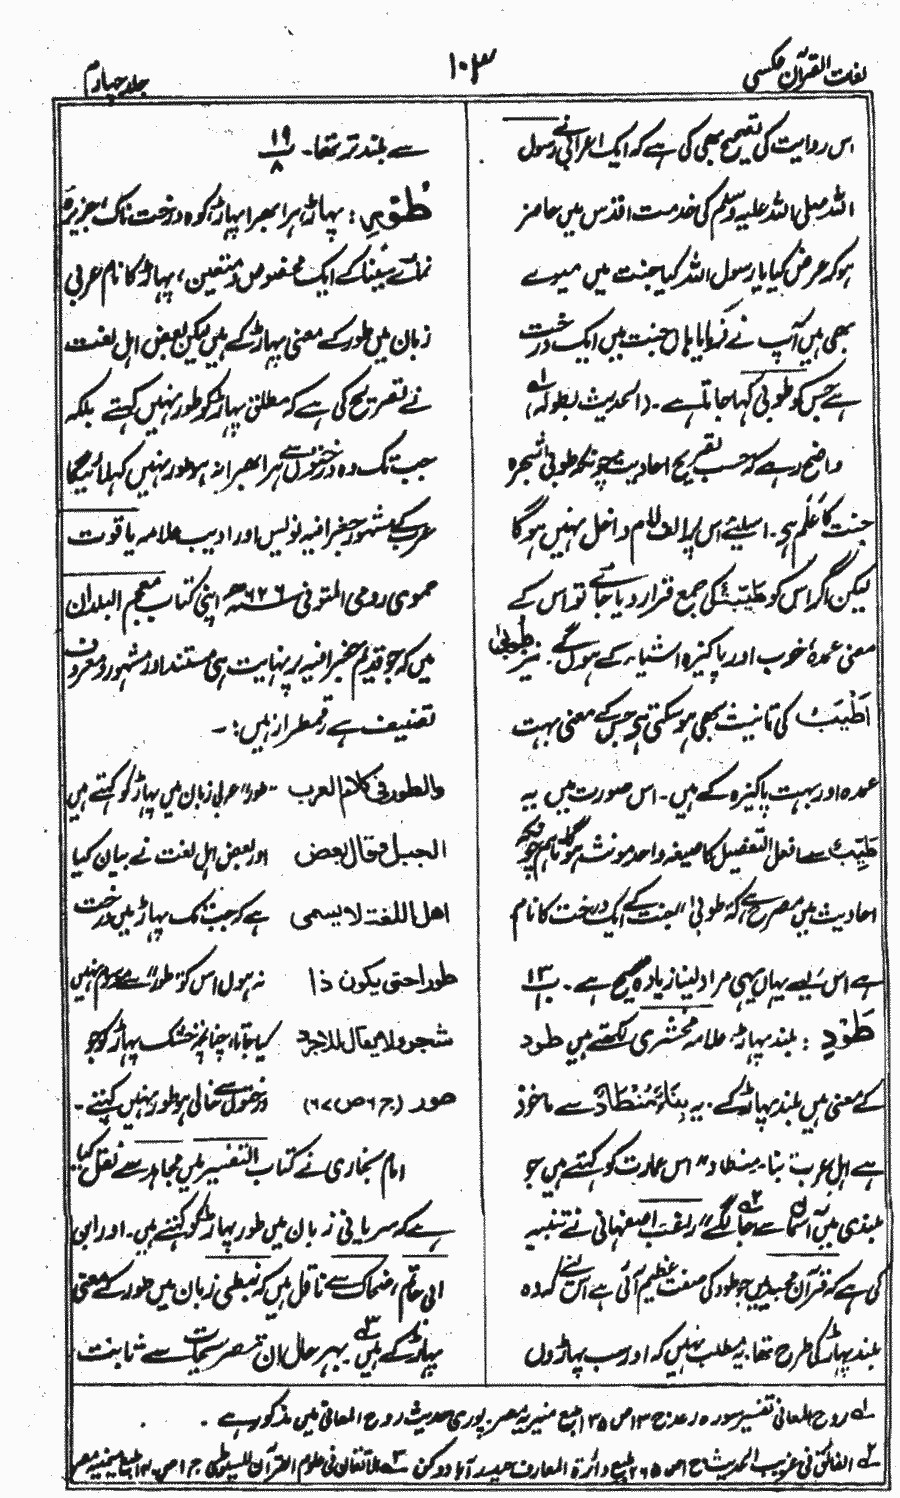 لغات القرآن عکسی
۱۰۳
جلد چہارم
اس روایت کی تصحیح بھی کی ہے کہ ایک اعرابی نے رسول
اللہ صلی اللہ علیہ وسلم کی خدمت اقدس میں حاضر
ہو کر عرض کیا یا رسول اللہ کیا جنت میں میوے
بھی ہیں آپ نے فرمایا ہاں جنت میں ایک درخت
ہے جس کو طوبیٰ کہا جاتا ہے۔ (الحدیث بطولہ)
واضح رہے کہ حسب تصریح احادیث چونکہ طوبیٰ شجرہ
جنت کا عَلَم ہی۔ اسلیئے اس پر الف لام داخل نہیں ہوگا
لیکن اگر اس کو طَیِّبَۃٌ کی جمع قرار دیا جائے تو اس کے
معنی عمدہ، خوب اور پاکیزہ اشیاء کے ہوں گے۔ نیز طوبیٰ
اَطْیَبُ کی تانیث بھی ہو سکتی ہی جس کے معنی بہت
عمدہ اور بہت پاکیزہ کے ہیں۔ اس صورت میں یہ
طَیِّبٌ سے افعل التفضیل کا صیغہ واحد مونث ہوگا تاہم چونکہ
احادیث میں مصرح ہے کہ طوبیٰ بہشت کے ایک درخت کا نام
ہے اس لئے یہاں یہی مراد لینا زیادہ صحیح ہے۔ پ۱۳
طَوْدٍ : بلند پہاڑ، علامہ زمخشری لکھتے ہیں طود
کے معنی ہیں بلند پہاڑ کے۔ یہ بِنَاءٌ مُنْطَادٌ سے ماخوذ
ہے اہل عرب بنا۔ منطاد اس عمارت کو کہتے ہیں جو
بلندی میں آسمان سے جا لگے راغب اصفہانی نے تنبیہ
کی ہے کہ قرآن مجید میں جو طود کی صفت عظیم آئی ہے اس لئے کہ وہ
بلند پہاڑ کی طرح تھا۔ یہ مطلب نہیں کہ اور سب پہاڑوں
سے بلند تر تھا۔ پ۱۹ ۸
طُوْرِ : پہاڑ، ہرا بھرا پہاڑ، کوہ درخت ناک، جزیرہ
نمائے سینا کے ایک مخصوص و متعین، پہاڑ کا نام عربی
زبان میں طور کے معنی پہاڑ کے ہیں لیکن بعض اہل لغت
نے تصریح کی ہے کہ مطلق پہاڑ کو طور نہیں کہتے بلکہ
جب تک وہ درختوں سے ہرا بھرا نہ ہو طور نہیں کہلائیگا
عرب کے مشہور جغرافیہ نویس اور ادیب علامہ یاقوت
حموی رومی المتوفی ۶۲۶ھ اپنی کتاب معجم البلدان
میں کہ جو قدیم جغرافیہ پر نہایت ہی مستند اور مشہور و معروف
تصنیف ہے رقمطراز ہیں :۔
والطور فی کلام العرب ۔ طور عربی زبان میں پہاڑ کو کہتے ہیں
الجبل وقال بعض اور بعض اہل لغت نے بیان کیا
اھل اللغۃ لا یسمی ہے کہ جب تک پہاڑ میں درخت
طورا حتی یکون ذا نہ ہوں اس کو طور سے موسوم نہیں
شجر ولا یقال للاجرد کیا جاتا، چنانچہ خشک پہاڑ کو جو
طور (ج ۶ ص ۶۷) درختوں سے خالی ہو طور نہیں کہتے۔
امام بخاری نے کتاب التفسیر میں مجاہد سے نقل کیا
ہے کہ سریانی زبان میں طور پہاڑ کو کہتے ہیں۔ اور ابن
ابی حاتم، ضحاک سے ناقل ہیں کہ نبطی زبان میں طور کے معنی
پہاڑ کے ہیں۔ بہر حال ان تصریحات سے ثابت
لہ روح المعانی تفسیر سورہ رعد ج ۱۳ ص ۱۳۵ طبع منیریہ مصر۔ پوری حدیث روح المعانی میں مذکور ہے۔
۲ہ الفائق فی غریب الحدیث ج ۱ ص ۲۶۵ طبع دائرۃ المعارف حیدرآباد دکن ۳ہ الاتقان فی علوم القرآن للسیوطی ج ۱ ص طبع میمنیہ مصر